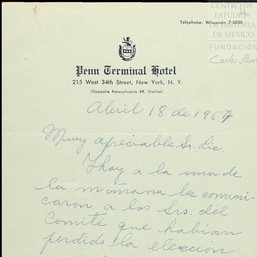 Telephone: Wisconsin 7-5050
CENTRO DE
ESTUDIOS
DE MÉXICO
FUNDACIÓN
Carlos Slim
Penn Terminal Hotel
215 West 34th Street, New York, N. Y.
(Opposite Pennsylvania RR. Station)
Abril 18 de 1957
Muy apreciable Sr. Lic
Hoy a la una de
la mañana le comuni-
caron a los Srs. del
Comité que habian
perdido la elección